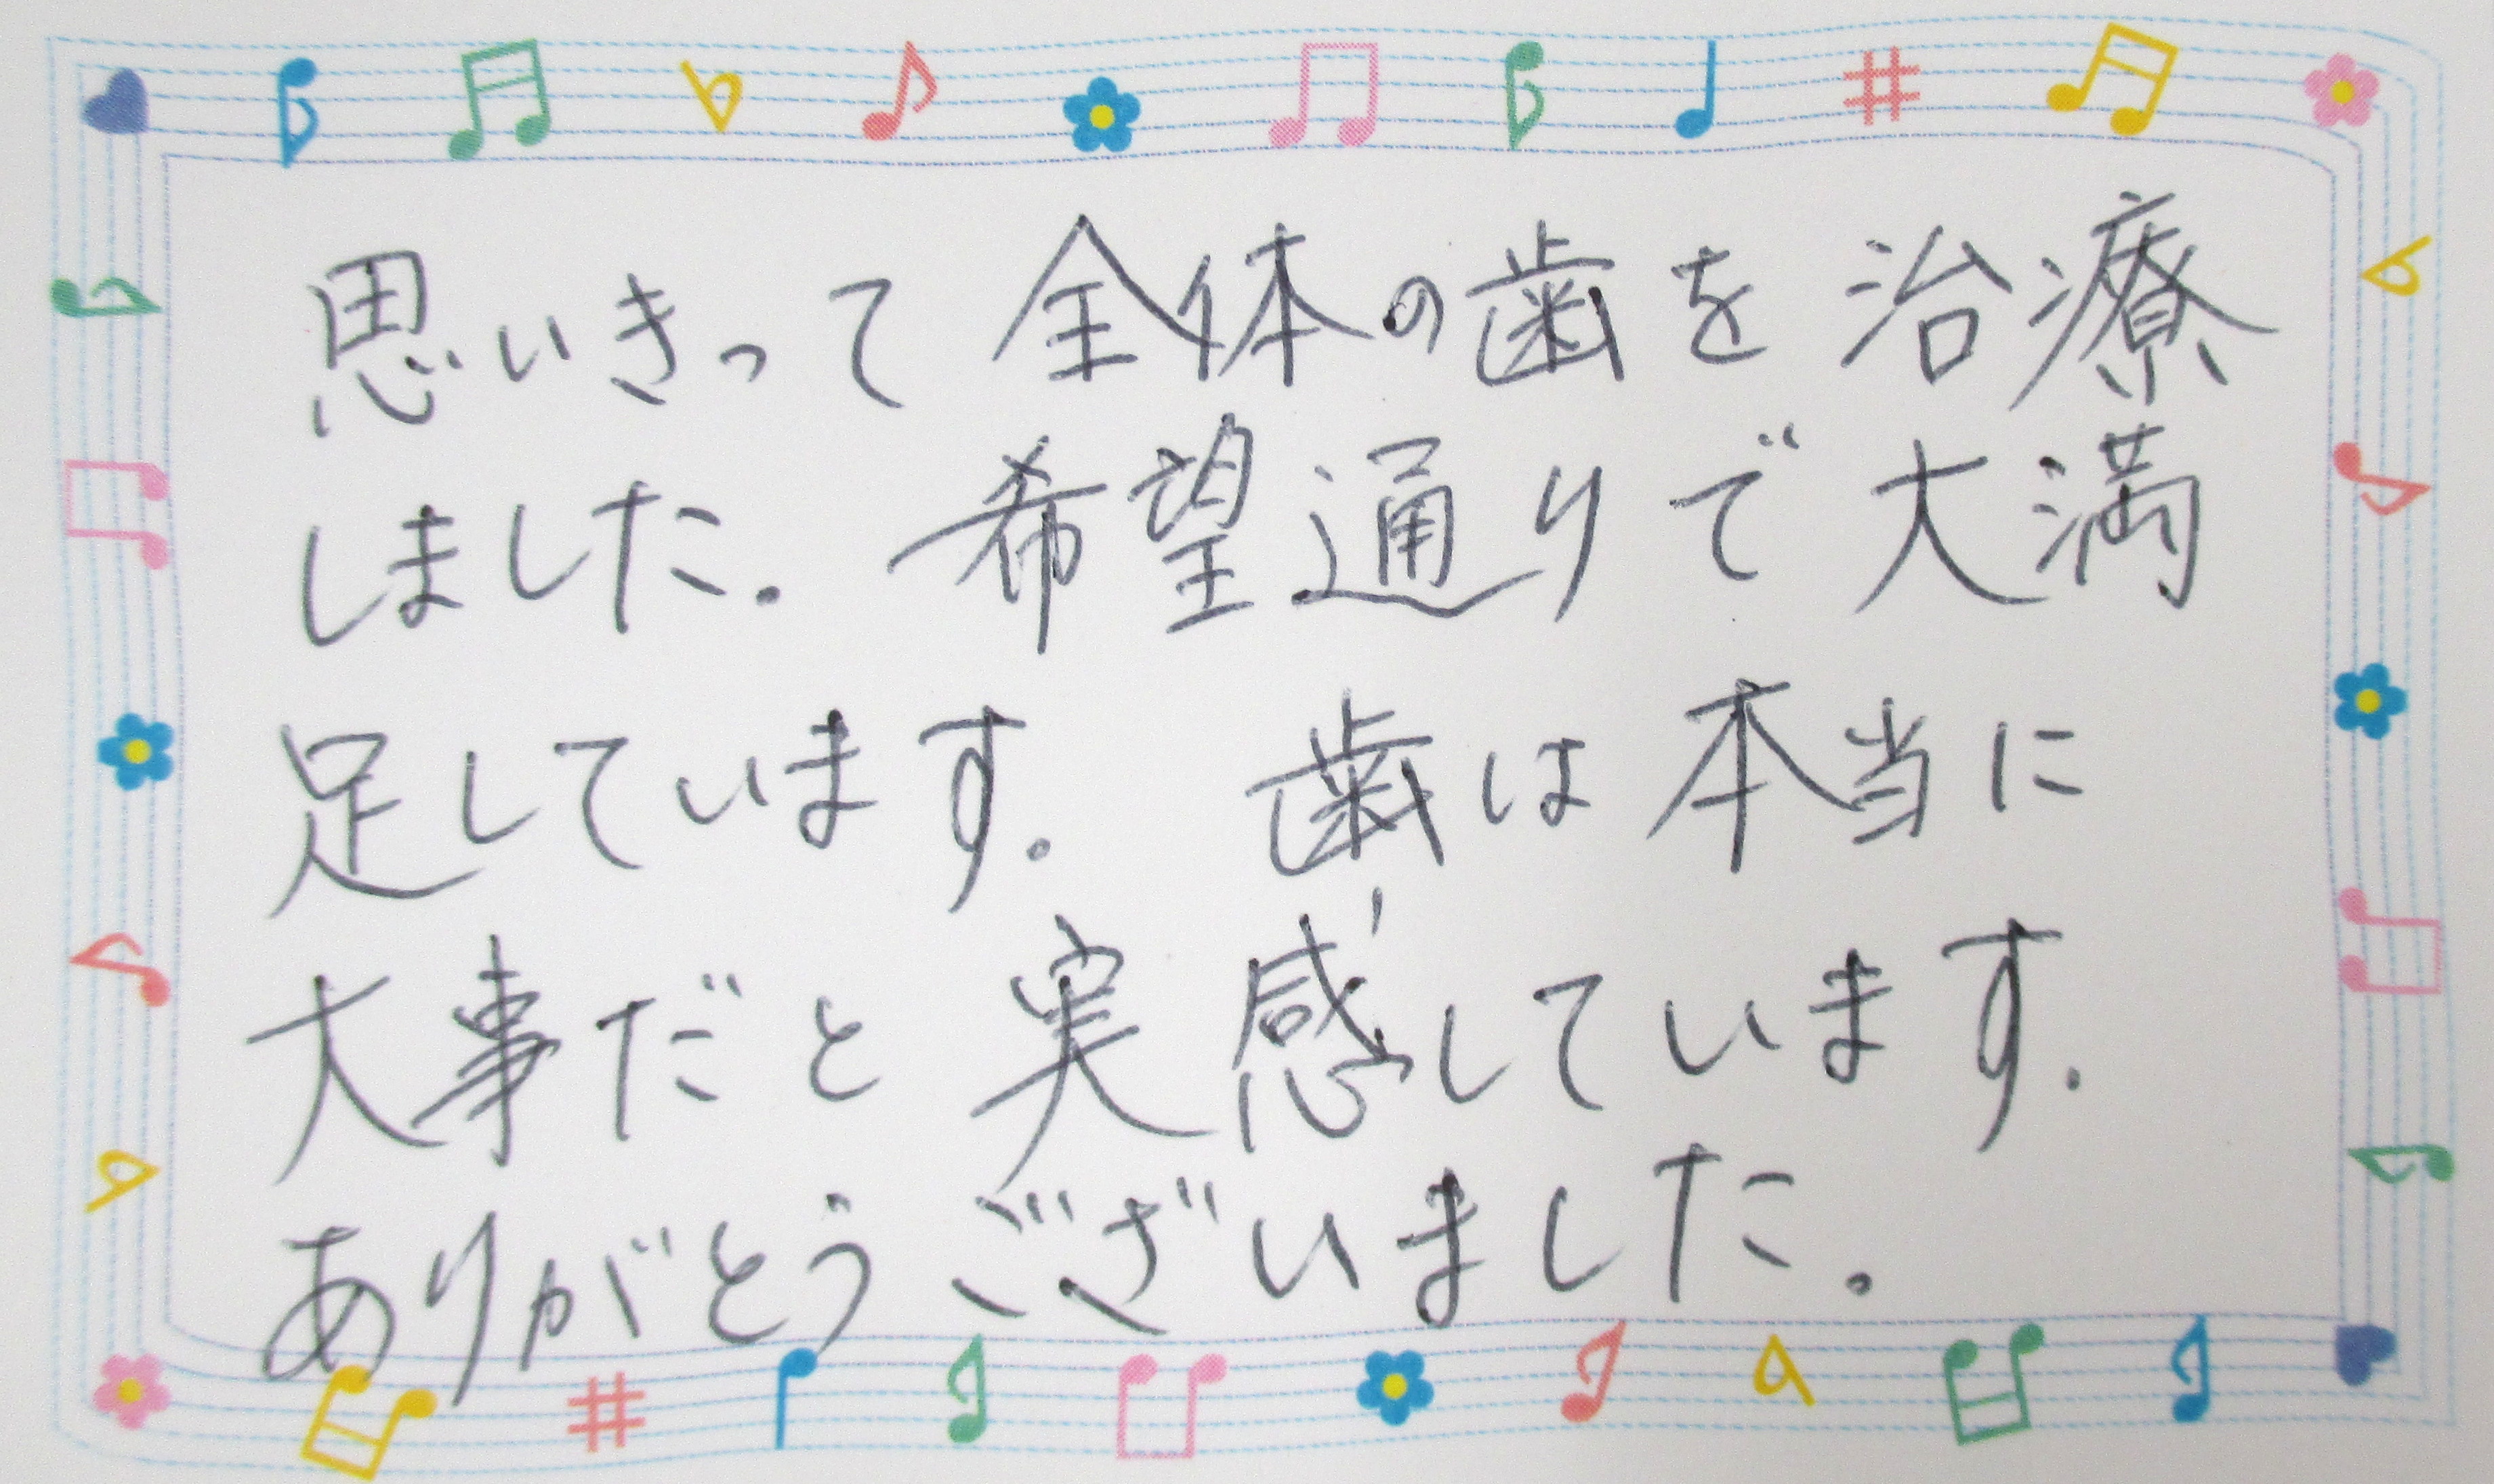 思いきって全体の歯を治療
しました。希望通りで大満
足しています。歯は本当に
大事だと実感しています。
ありがとうございました。